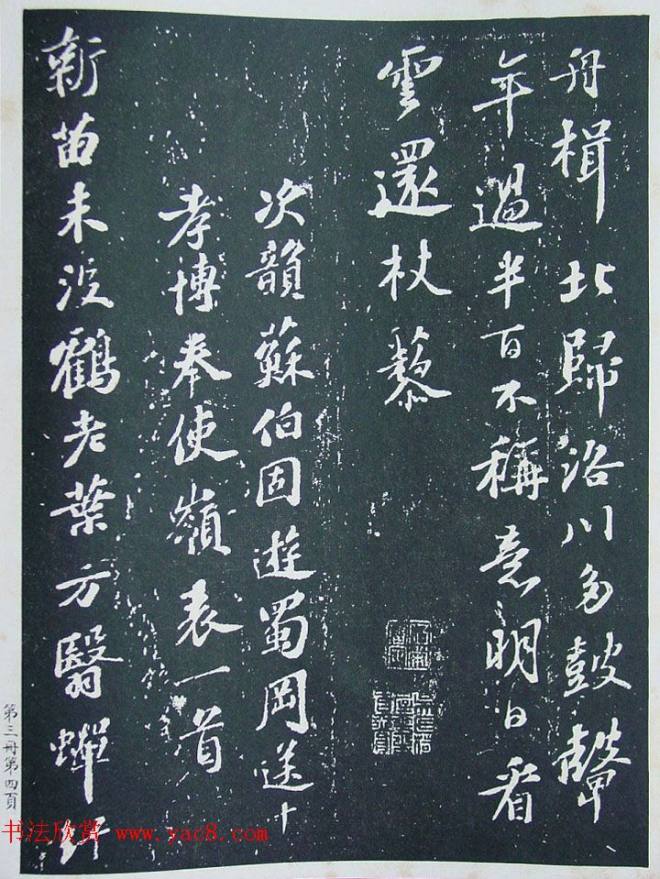 舟楫北歸洛川多鼓鼙
年過半百不稱意明日看
雲還杖藜
次韻蘇伯固遊蜀岡送
孝博奉使嶺表一首
新苗未没鶴老葉方翳蟬
第三册第四頁
书法欣赏 www.yac8.com